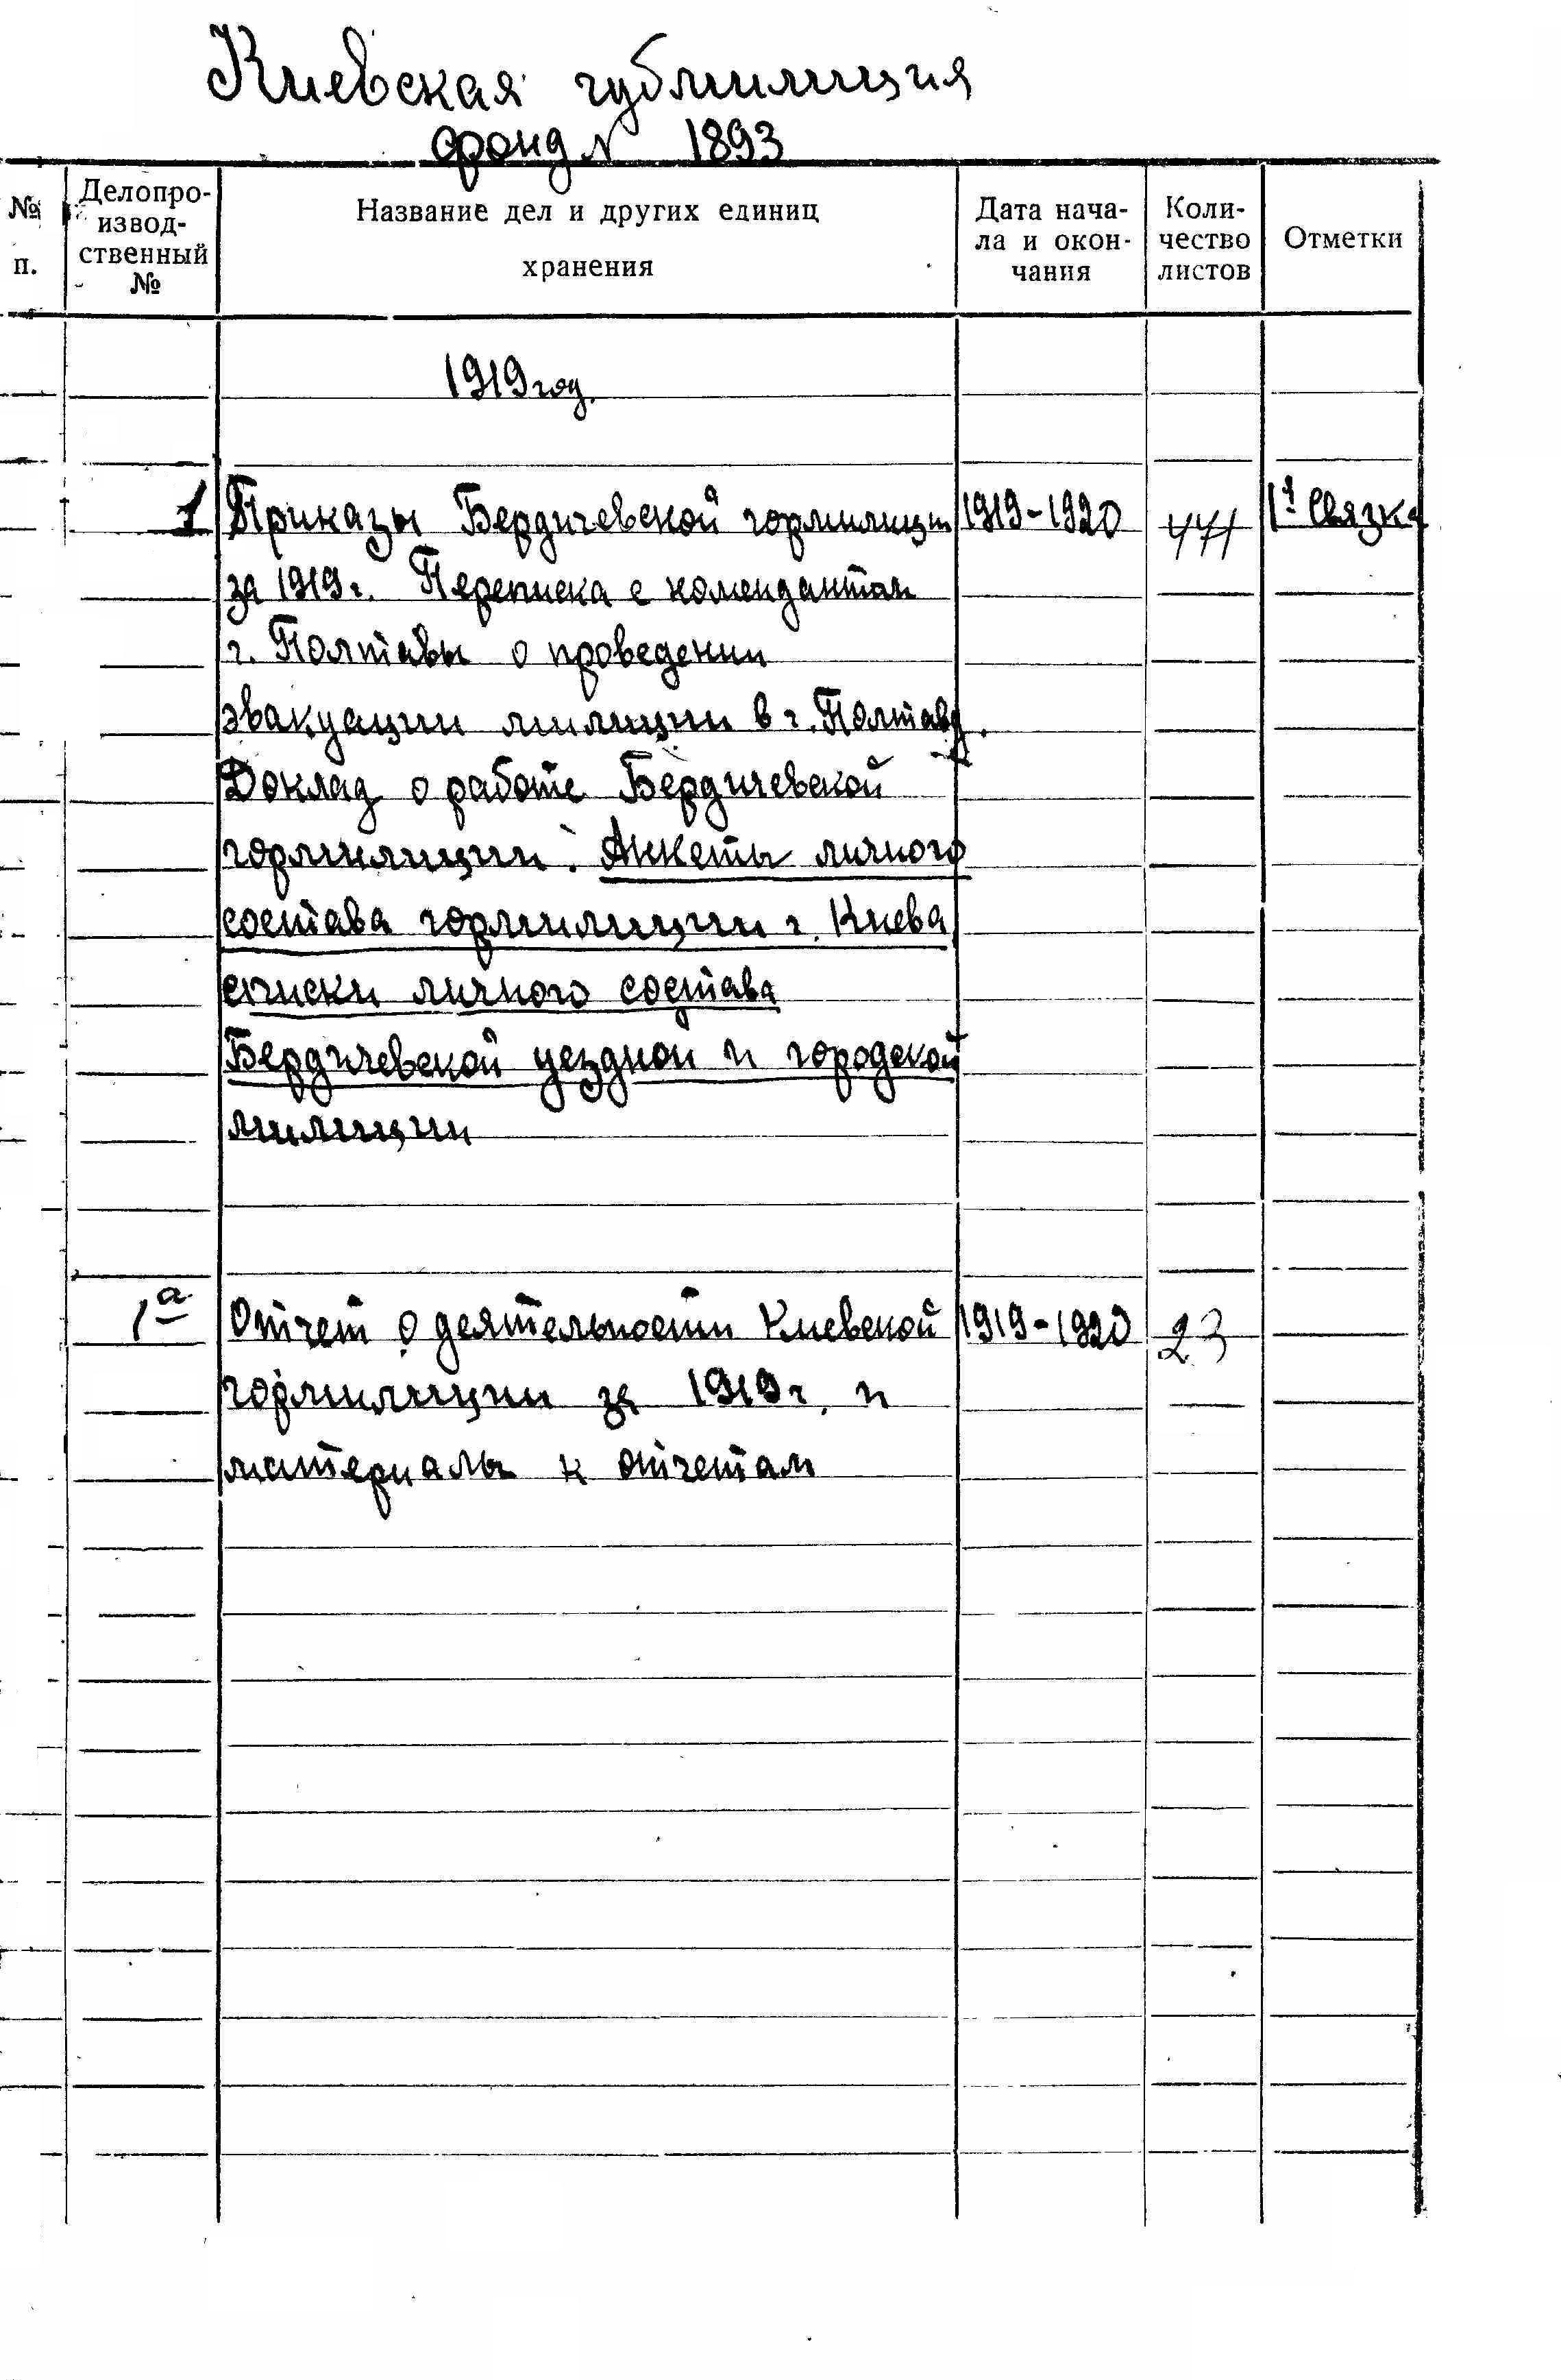 Киевская губмилиция
фонд № 1893
№ п.
Делопро-
извод-
ственный
№
Название дел и других единиц
хранения
Дата нача-
ла и окон-
чания
Коли-
чество
листов
Отметки
1919 год.
1 Приказы Бердичевской гормилиции 1919-1920 471 1я связка
за 1919г. Переписка с комендантом
г. Полтавы о проведении
эвакуации милиции в г. Полтаву.
Доклад о работе Бердичевской
гормилиции. Анкеты личного
состава гормилиции г. Киева
списки личного состава
Бердичевской уездной и городской
милиции
1а Отчет о деятельности Киевской 1919-1920 23
гормилиции за 1919г. и
материалы к отчетам